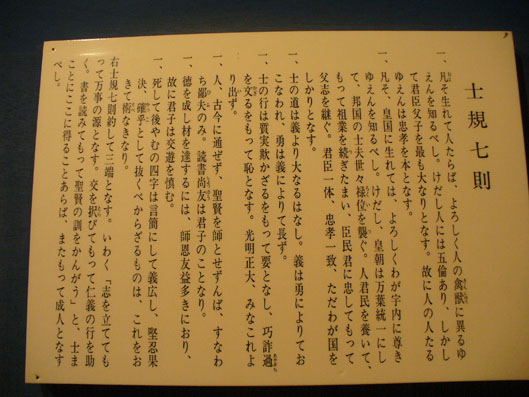 士規七則
一、凡そ生れて人たらば、よろしく人の禽獣に異るゆ
えんを知るべし。けだし人には五倫あり、しかし
て君臣父子を最も大なりとなす。故に人の人たる
ゆえんは忠孝を本となす。
一、凡そ、皇国に生れては、よろしくわが宇内に尊き
ゆえんを知るべし。けだし、皇朝は万葉統一にし
て、邦国の士夫世々禄位を襲ぐ。人君民を養いて、
もって祖業を続ぎたまい、臣民君に忠してもって
父志を継ぐ。君臣一体、忠孝一致、ただわが国を
しかりとなす。
一、士の道は義より大なるはなし。義は勇によりてお
こなわれ、勇は義によりて長ず。
一、士の行は質実欺かざるをもって要となし、巧詐過
を文るをもって恥となす。光明正大、みなこれよ
り出ず。
一、人、古今に通ぜず、聖賢を師とせずんば、すなわ
ち鄙夫のみ。読書尚友は君子のことなり。
一、徳を成し材を達するには、師恩友益多きにおり、
故に君子は交遊を慎む。
一、死して後やむの四字は言簡にして義広し、堅忍果
決、確乎として抜くべからざるものは、これをお
きて術なきなり。
右士規七則約して三端となす。いわく「志を立てても
って万事の源となす。交を択びてもって仁義の行を助
く。書を読みてもって聖賢の訓をかんがう」と、士ま
ことにここに得ることあらば、またもって成人となす
べし。